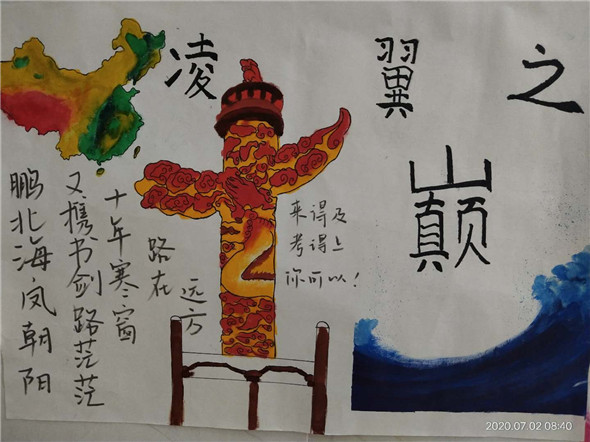 凌翼之
巅
鹏北海凤朝阳
又携书剑路茫茫
十年寒窗
路在
远方
来得及
考得上
你可以!
2020.07.02 08:40